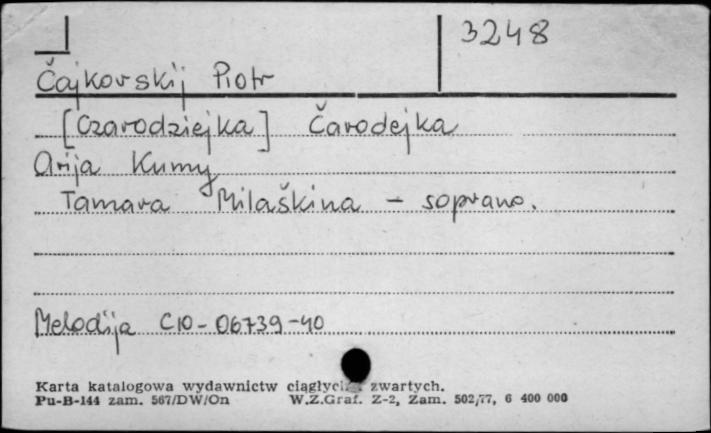 3248
Čajkovskij Piotr
[Czarodziejka] Čarodejka
Arija Kumy
Tamara Milaškina - soprano.
Melodija C10-06739-40
Karta katalogowa wydawnictw ciągłych zwartych.
Pu-B-144 zam. 567/DW/On W.Z.Graf. Z-2, Zam. 502/77, 6 400 000